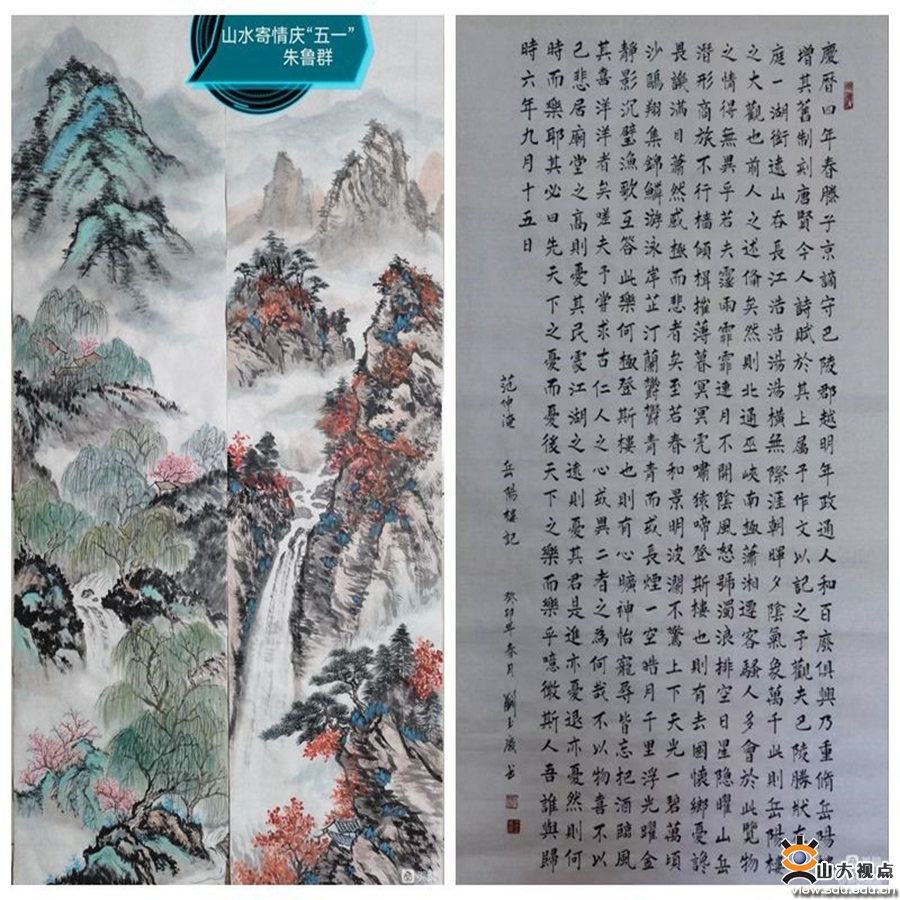 山水寄情庆“五一”
朱鲁群
慶曆四年春滕子京謫守巴陵郡越明年政通人和百廢俱興乃重脩岳陽
增其舊制刻唐賢今人詩賦於其上屬予作文以記之予觀夫巴陵勝狀在
庭一湖銜遠山吞長江浩浩湯湯橫無際涯朝暉夕陰氣象萬千此則岳陽樓
之大觀也前人之述俻矣然則北通巫峽南極瀟湘遷客騷人多會於此覽物
之情得無異乎若夫霪雨霏霏連月不開陰風怒號濁浪排空日星隱曜山岳
潛形商旅不行檣傾楫摧薄暮冥冥虎嘯猿啼登斯樓也則有去國懷鄉憂讒
畏譏滿目蕭然感極而悲者矣至若春和景明波瀾不驚上下天光一碧萬頃
沙鷗翔集錦鱗游泳岸芷汀蘭鬱鬱青青而或長煙一空皓月千里浮光躍金
靜影沉璧漁歌互答此樂何極登斯樓也則有心曠神怡寵辱皆忘把酒臨風
其喜洋洋者矣嗟夫予嘗求古仁人之心或異二者之為何哉不以物喜不以
己悲居廟堂之高則憂其民處江湖之遠則憂其君是進亦憂退亦憂然則何
時而樂耶其必曰先天下之憂而憂後天下之樂而樂乎噫微斯人吾誰與歸
時六年九月十五日
范仲淹 岳陽樓記 癸卯年春月 劉玉廣書
山大视点
view.sdu.edu.cn